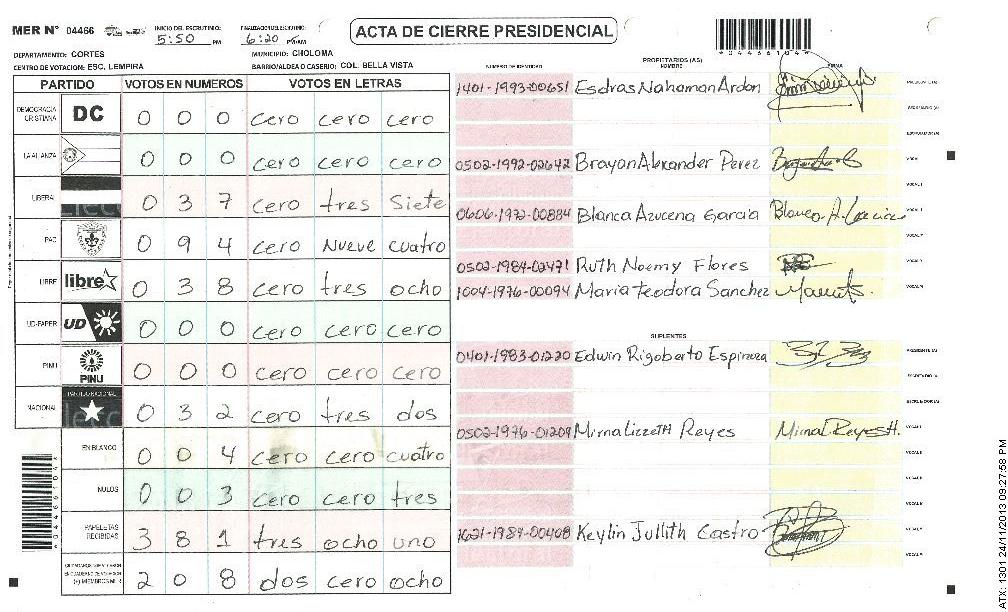 MER Nº 04466
INICIO DEL ESCRUTINIO: 5:50 PM
FINALIZACION DEL ESCRUTINIO: 6:20 PM
ACTA DE CIERRE PRESIDENCIAL
DEPARTAMENTO: CORTES
MUNICIPIO: CHOLOMA
CENTRO DE VOTACION: ESC. LEMPIRA
BARRIO/ALDEA O CASERIO: COL. BELLA VISTA
PARTIDO VOTOS EN NUMEROS VOTOS EN LETRAS
DEMOCRACIA CRISTIANA DC 0 0 0 cero cero cero
LA ALIANZA 0 0 0 cero cero cero
LIBERAL 0 3 7 cero tres siete
PAC 0 9 4 cero nueve cuatro
LIBRE libre 0 3 8 cero tres ocho
UD-FAPER UD 0 0 0 cero cero cero
PINU PINU 0 0 0 cero cero cero
NACIONAL PARTIDO NACIONAL 0 3 2 cero tres dos
EN BLANCO 0 0 4 cero cero cuatro
NULOS 0 0 3 cero cero tres
PAPELETAS RECIBIDAS 3 8 1 tres ocho uno
(+) MIEMBROS MER 2 0 8 dos cero ocho
PROPIETARIOS (AS)
NUMERO DE IDENTIDAD NOMBRE FIRMA
1401-1993-00651 Esdras Nahaman Ardon
0502-1992-02642 Brayan Alexander Perez
0606-1972-00884 Blanca Azucena Garcia Blanca A. Garcia
0502-1984-02471 Ruth Noemy Flores
1004-1976-00094 Maria Teodora Sanchez
SUPLENTES
0401-1983-01220 Edwin Rigoberto Espinoza
0502-1976-01209 Mirna Lizzeth Reyes Mirna L Reyes H.
1621-1984-00408 Keylin Jullith Castro
*04466104*
ATX: 1301 24/11/2013 09:27:58 PM